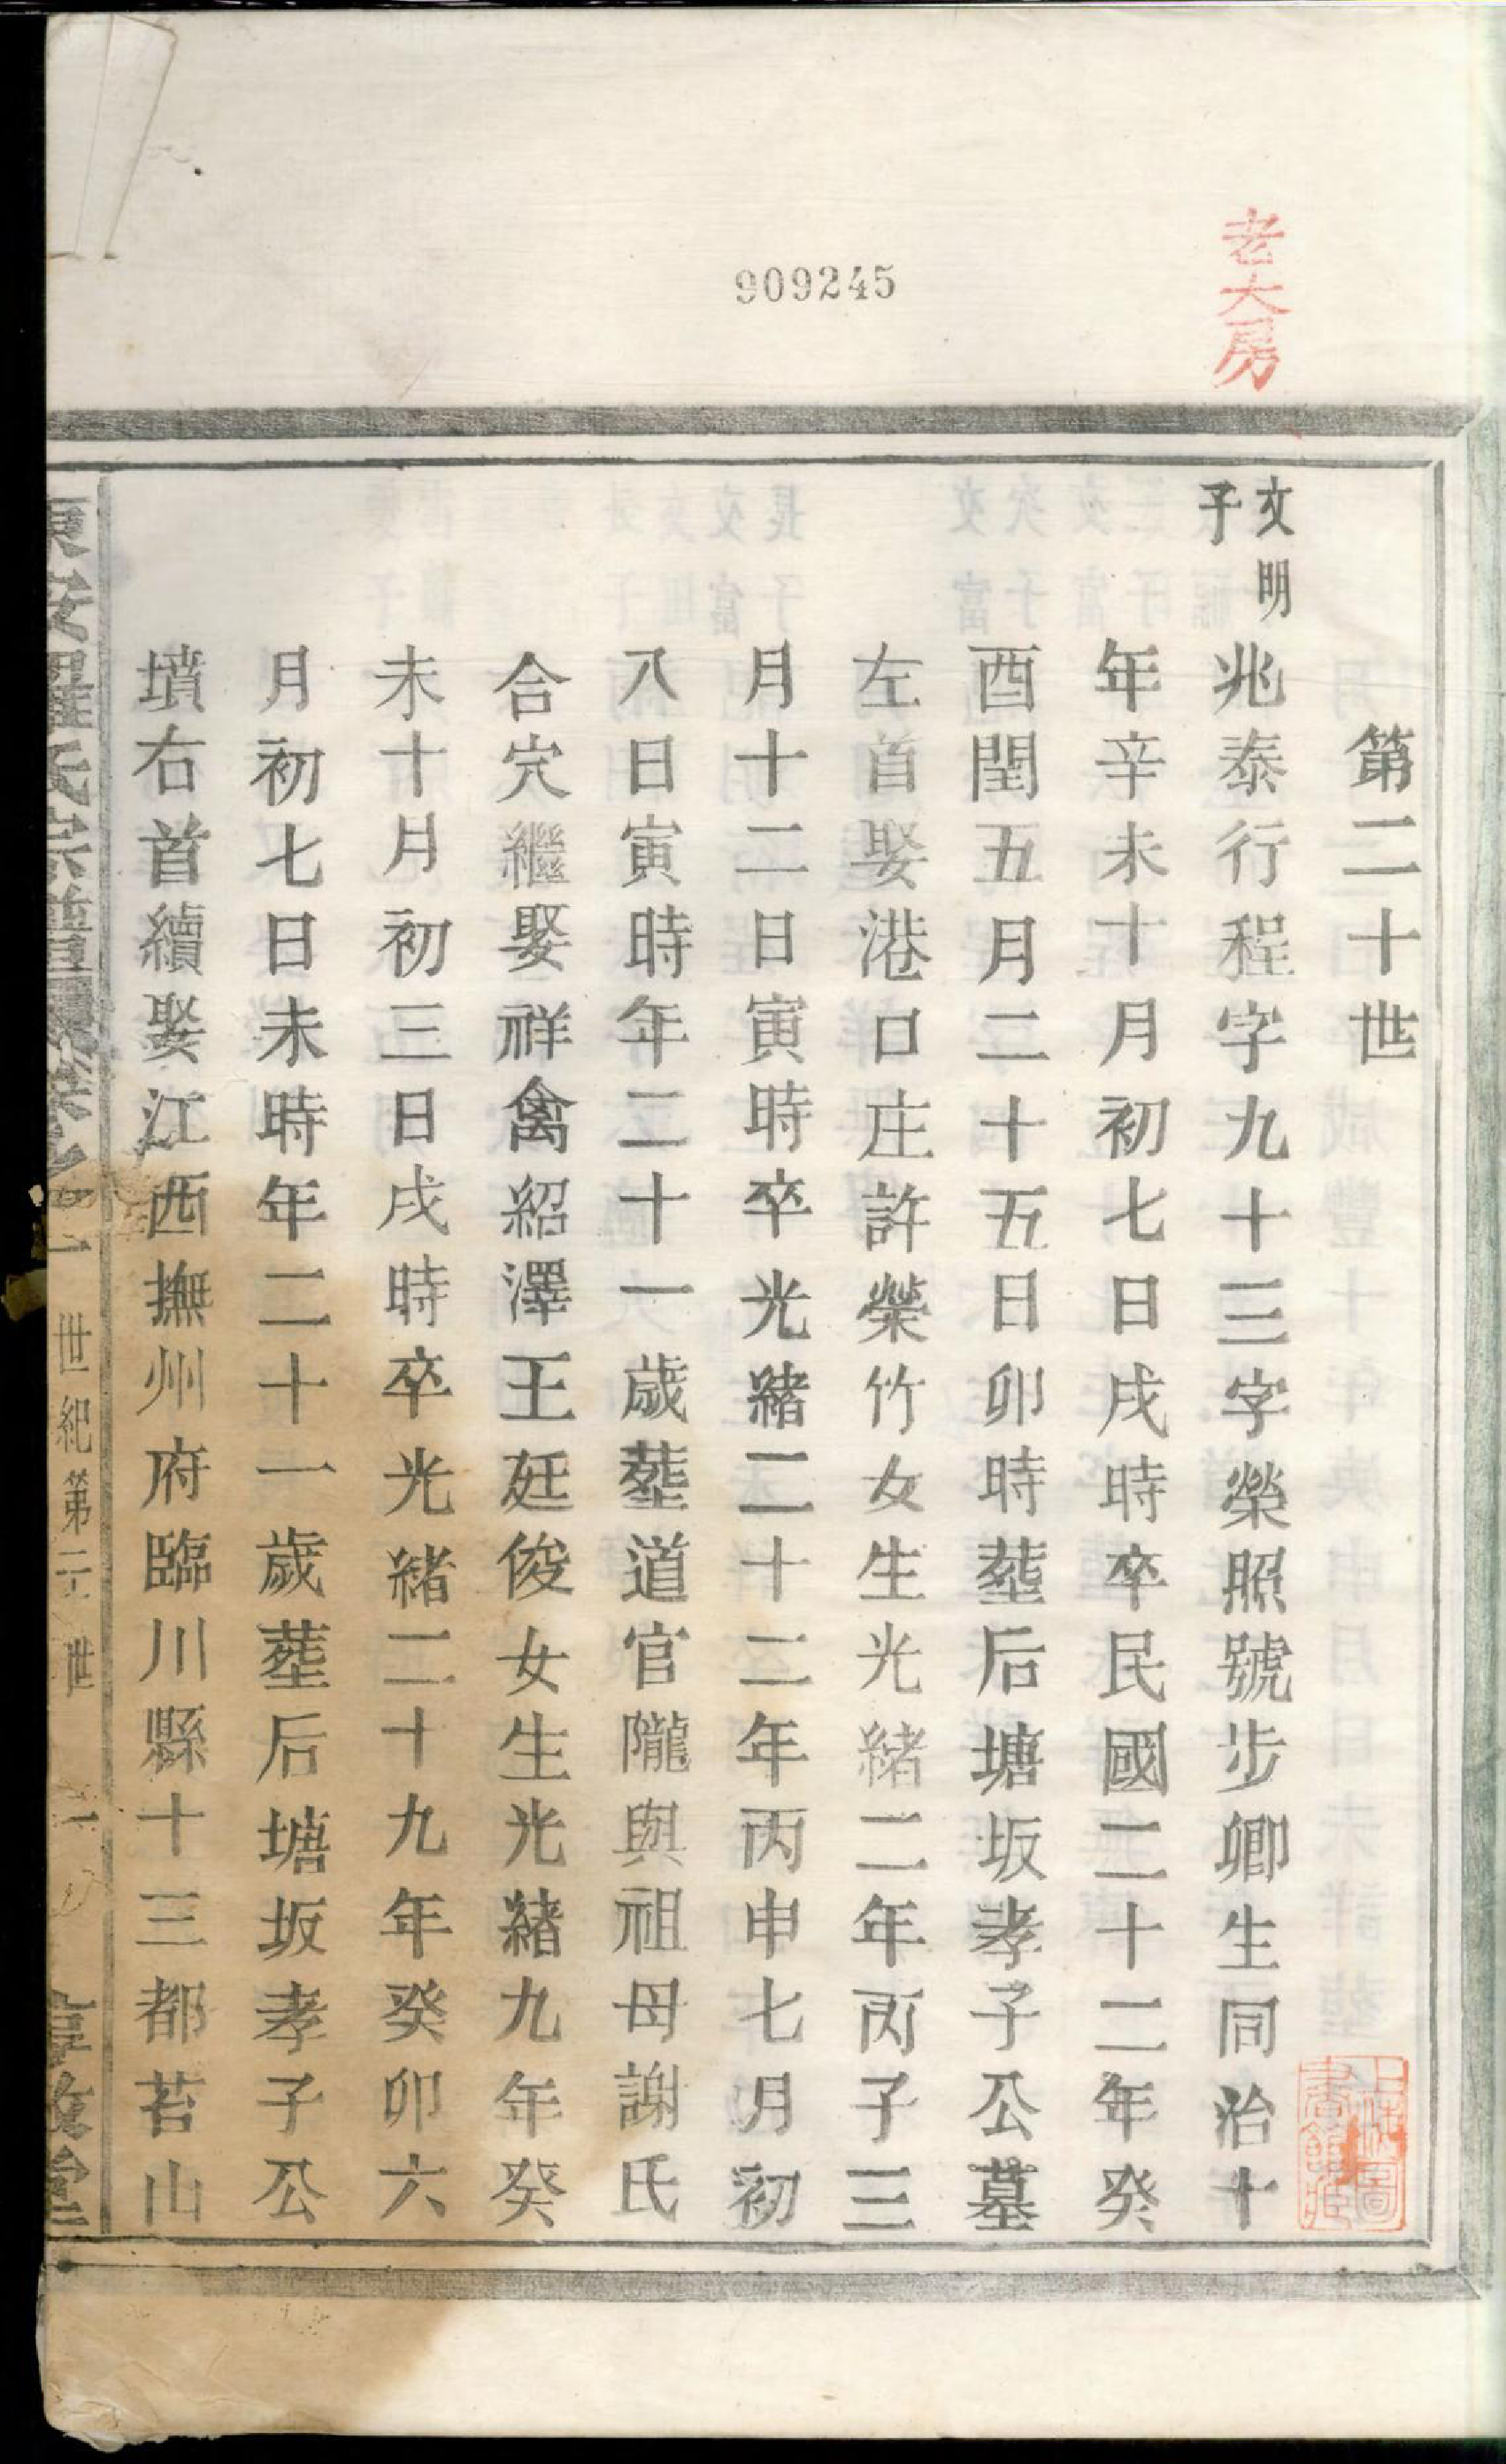 老大房
909245
第二十世
文明
子
兆泰行程字九十三字榮照號步卿生同治十
年辛未十月初七日戌時卒民國二十二年癸
酉閏五月二十五日卯時塟后塘坂孝子公墓
左首娶港口庄許榮竹女生光緒二年丙子三
月十二日寅時卒光緒二十二年丙申七月初
八日寅時年二十一歲塟道官隴與祖母謝氏
合穴繼娶祥禽紹澤王廷俊女生光緒九年癸
未十月初三日戌時卒光緒二十九年癸卯六
月初七日未時年二十一歲塟后塘坂孝子公
墳右首續娶江西撫州府臨川縣十三都苔山
安羅氏宗譜 卷之一 世紀第二十世 一